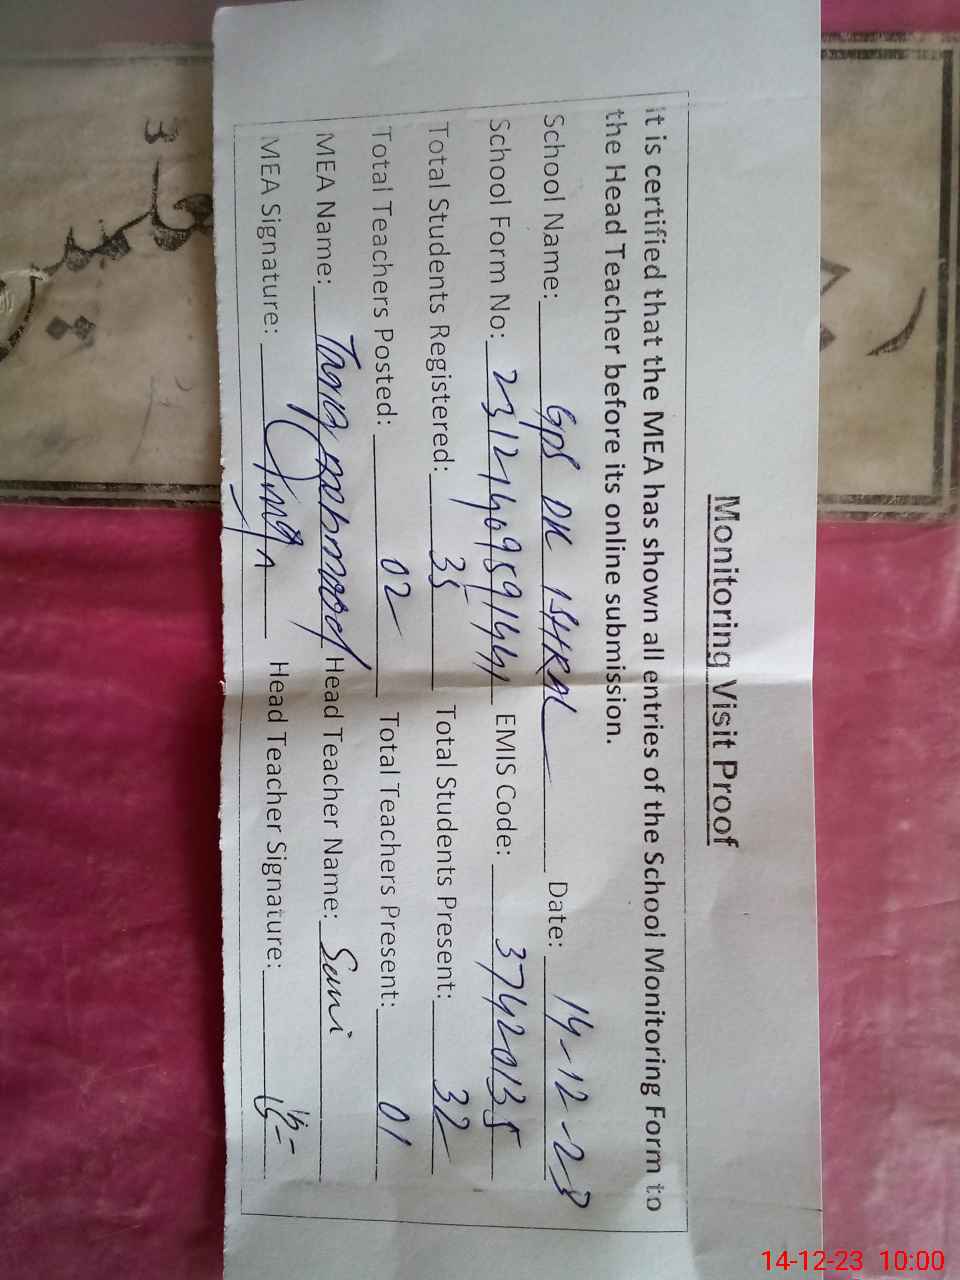 Monitoring Visit Proof
it is certified that the MEA has shown all entries of the School Monitoring Form to
the Head Teacher before its online submission.
School Name: GPS DK ISHRAL Date: 14-12-23
School Form No: EMIS Code: 37420135
Total Students Registered: 35 Total Students Present: 32
Total Teachers Posted: 02 Total Teachers Present: 01
MEA Name: Tariq mehmood Head Teacher Name: Sami
MEA Signature: Head Teacher Signature:
14-12-23 10:00